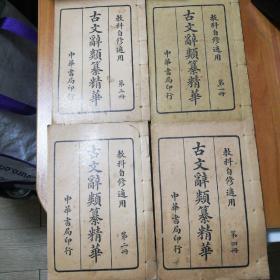 教科自修適用
古文辭類纂精華
第三冊
中華書局印行
教科自修適用
古文辭類纂精華
第一冊
中華書局印行
教科自修適用
古文辭類纂精華
第二冊
中華書局印行
教科自修適用
古文辭類纂精華
第四冊
中華書局印行